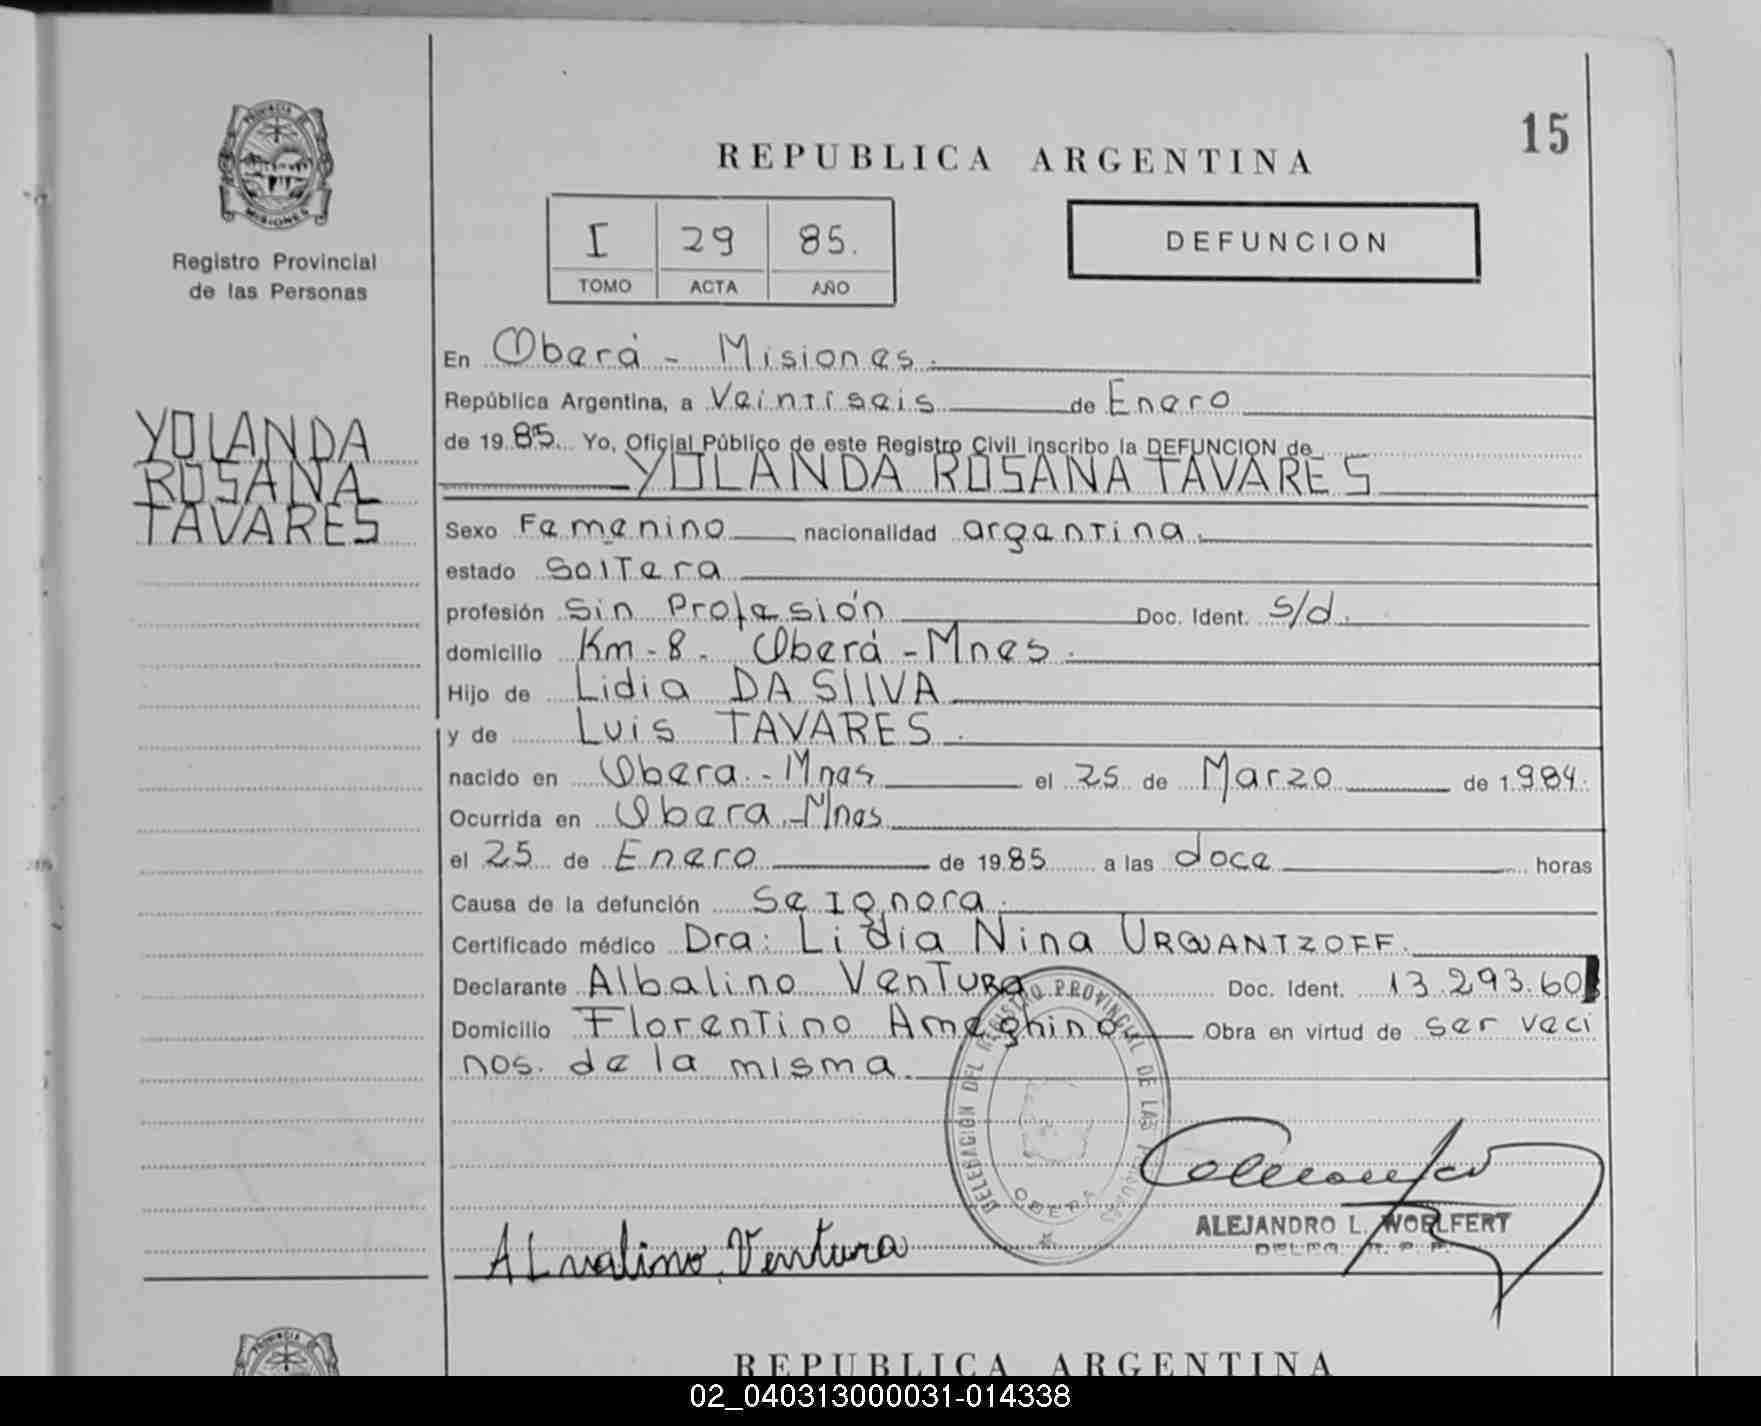 15
PROVINCIA DE
MISIONES
Registro Provincial
de las Personas
REPUBLICA ARGENTINA
I 29 85.
TOMO ACTA AÑO
DEFUNCION
YOLANDA
ROSANA
TAVARES
En Oberá - Misiones.
República Argentina, a Veintiseis de Enero
de 19 85 Yo, Oficial Público de este Registro Civil inscribo la DEFUNCION de
YOLANDA ROSANA TAVARES
Sexo Femenino nacionalidad argentina.
estado Soltera
profesión Sin Profesión Doc. Ident. s/d.
domicilio Km-8. Oberá - Mnes.
Hijo de Lidia DA SILVA
y de Luis TAVARES.
nacido en Obera - Mnes el 25 de Marzo de 1984.
Ocurrida en Obera - Mnes
el 25 de Enero de 1985 a las doce horas
Causa de la defunción Se Ignora.
Certificado médico Dra: Lidia Nina URQUANTZOFF.
Declarante Albalino Ventura Doc. Ident. 13.293.60
Domicilio Florentino Ameghino Obra en virtud de ser veci
nos. de la misma.
DELEGACION DEL REGISTRO PROVINCIAL DE LAS PERSONAS
OBERA
ALEJANDRO L. WOELFERT
ALvalino Ventura
REPUBLICA ARGENTINA
PROVINCIA DE
02_040313000031-014338